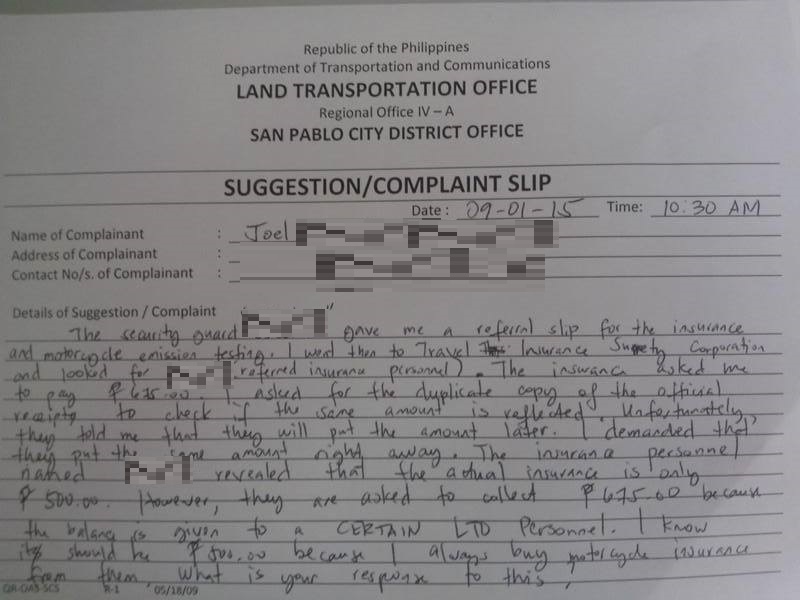 Republic of the Philippines
Department of Transportation and Communications
LAND TRANSPORTATION OFFICE
Regional Office IV – A
SAN PABLO CITY DISTRICT OFFICE
SUGGESTION/COMPLAINT SLIP
Date : 09-01-15 Time: 10:30 AM
Name of Complainant : Joel
Address of Complainant :
Contact No/s. of Complainant :
Details of Suggestion / Complaint
The security guard " gave me a referral slip for the insurance
and motorcycle emission testing. I went then to Travel Insurance Surety Corporation
and looked for (referred insurance personnel). The insurance asked me
to pay ₱ 675.00. I asked for the duplicate copy of the official
receipts to check if the same amount is reflected. Unfortunately,
they told me that they will put the amount later. I demanded that
they put the same amount right away. The insurance personnel
named revealed that the actual insurance is only
₱ 500.00. However, they are asked to collect ₱ 675.00 because
the balang is given to a CERTAIN LTO Personnel. I know
its should be ₱ 500.00 because I always buy motorcycle insurance
from them. What is your response to this,
QR-OAS-SCS R-1 05/18/09